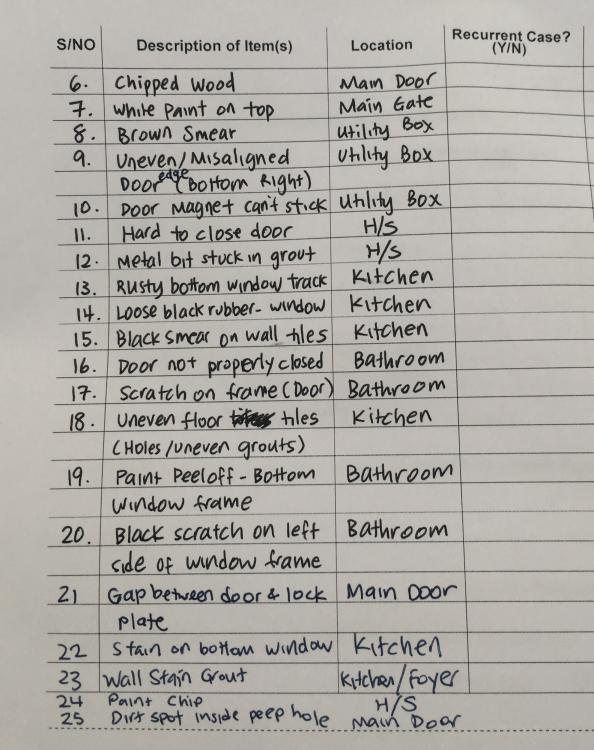 S/NO Description of Item(s) Location Recurrent Case? (Y/N)
6. Chipped Wood Main Door
7. White Paint on top Main Gate
8. Brown Smear Utility Box
9. Uneven/Misaligned Utility Box
Door edge (Bottom Right)
10. Door Magnet can't stick Utility Box
11. Hard to close door H/S
12. Metal bit stuck in grout H/S
13. Rusty bottom window track Kitchen
14. Loose black rubber - window Kitchen
15. Black smear on wall tiles Kitchen
16. Door not properly closed Bathroom
17. Scratch on frame (Door) Bathroom
18. Uneven floor tiles Kitchen
(Holes/uneven grouts)
19. Paint Peeloff - Bottom Bathroom
window frame
20. Black scratch on left Bathroom
side of window frame
21 Gap between door & lock Main Door
plate
22 Stain on bottom window Kitchen
23 Wall Stain Grout Kitchen/Foyer
24 Paint Chip H/S
25 Dirt spot inside peep hole Main Door